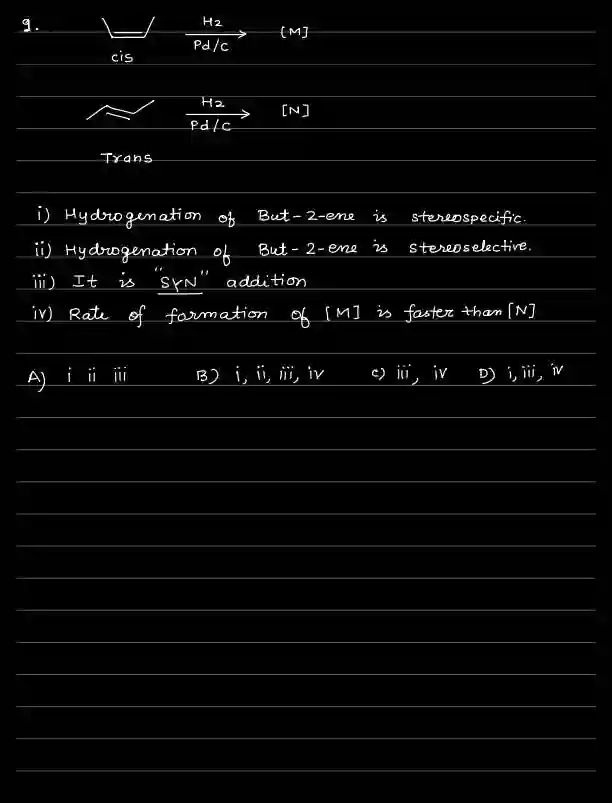 9.
H2
Pd/C
[M]
cis
H2
Pd/C
[N]
Trans
i) Hydrogenation of But-2-ene is stereospecific.
ii) Hydrogenation of But-2-ene is stereoselective.
iii) It is "SYN" addition
iv) Rate of formation of [M] is faster than [N]
A) i ii iii B) i, ii, iii, iv c) iii, iv D) i, iii, iv